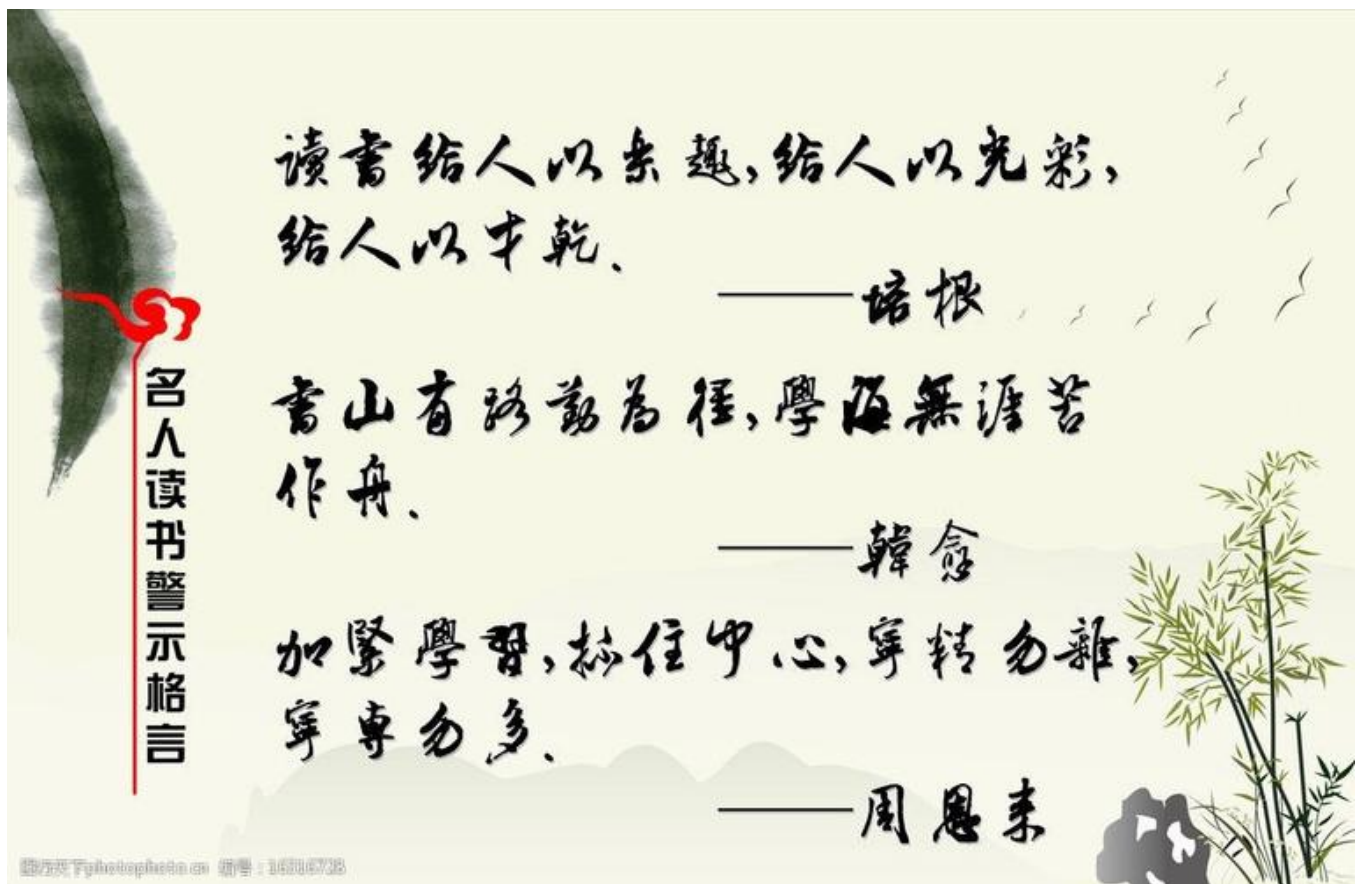 名人读书警示格言
讀書给人以樂趣,给人以光彩,
给人以才乾.
——培根
書山有路勤為徑,學海無涯苦
作舟.
——韓愈
加緊學習,抓住中心,寧精勿雜,
寧專勿多.
——周恩来
图行天下photophoto.cn 编号:16316728